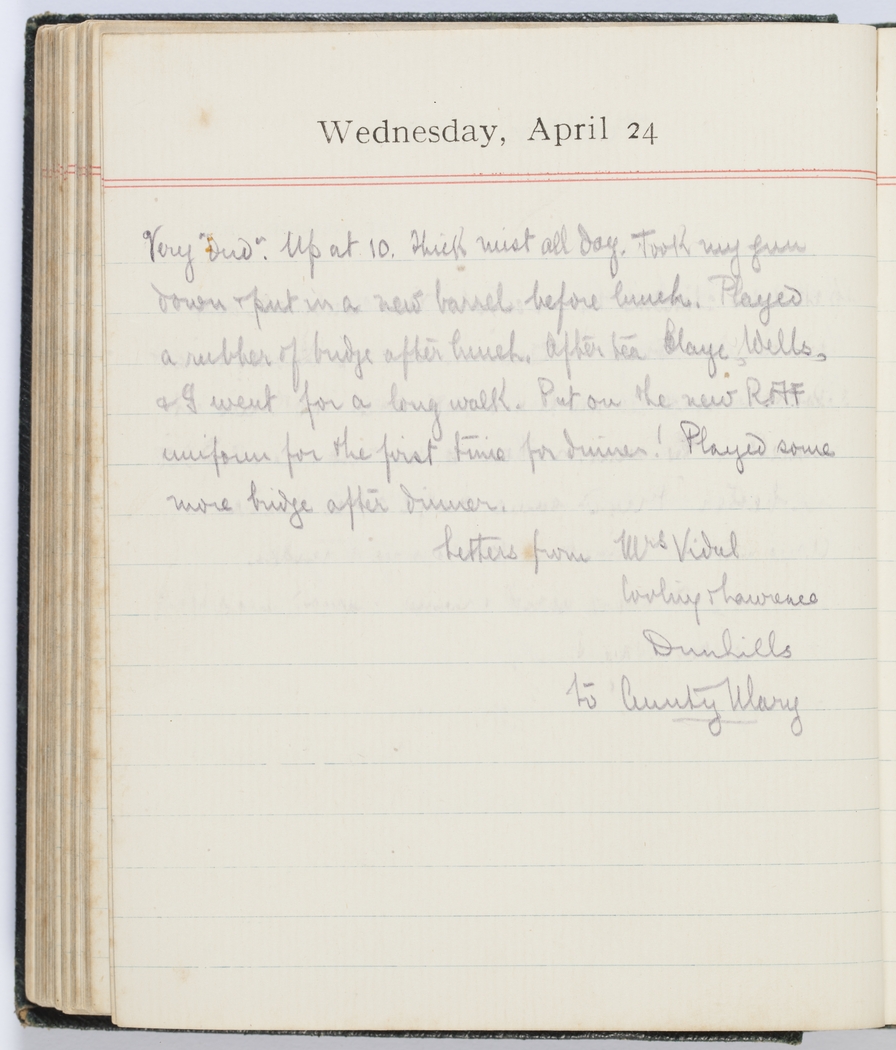 Wednesday, April 24
Very "Dud". Up at 10. Thick mist all day. Took my gun
down & put in a new barrel before lunch. Played
a rubber of bridge after lunch. After tea Claye, Wells,
& I went for a long walk. Put on the new R.A.F
uniform for the first time for dinner! Played some
more bridge after dinner.
Letters from Mrs Vidal
Cooling & Lawrence
Dunhills
to Aunty Mary